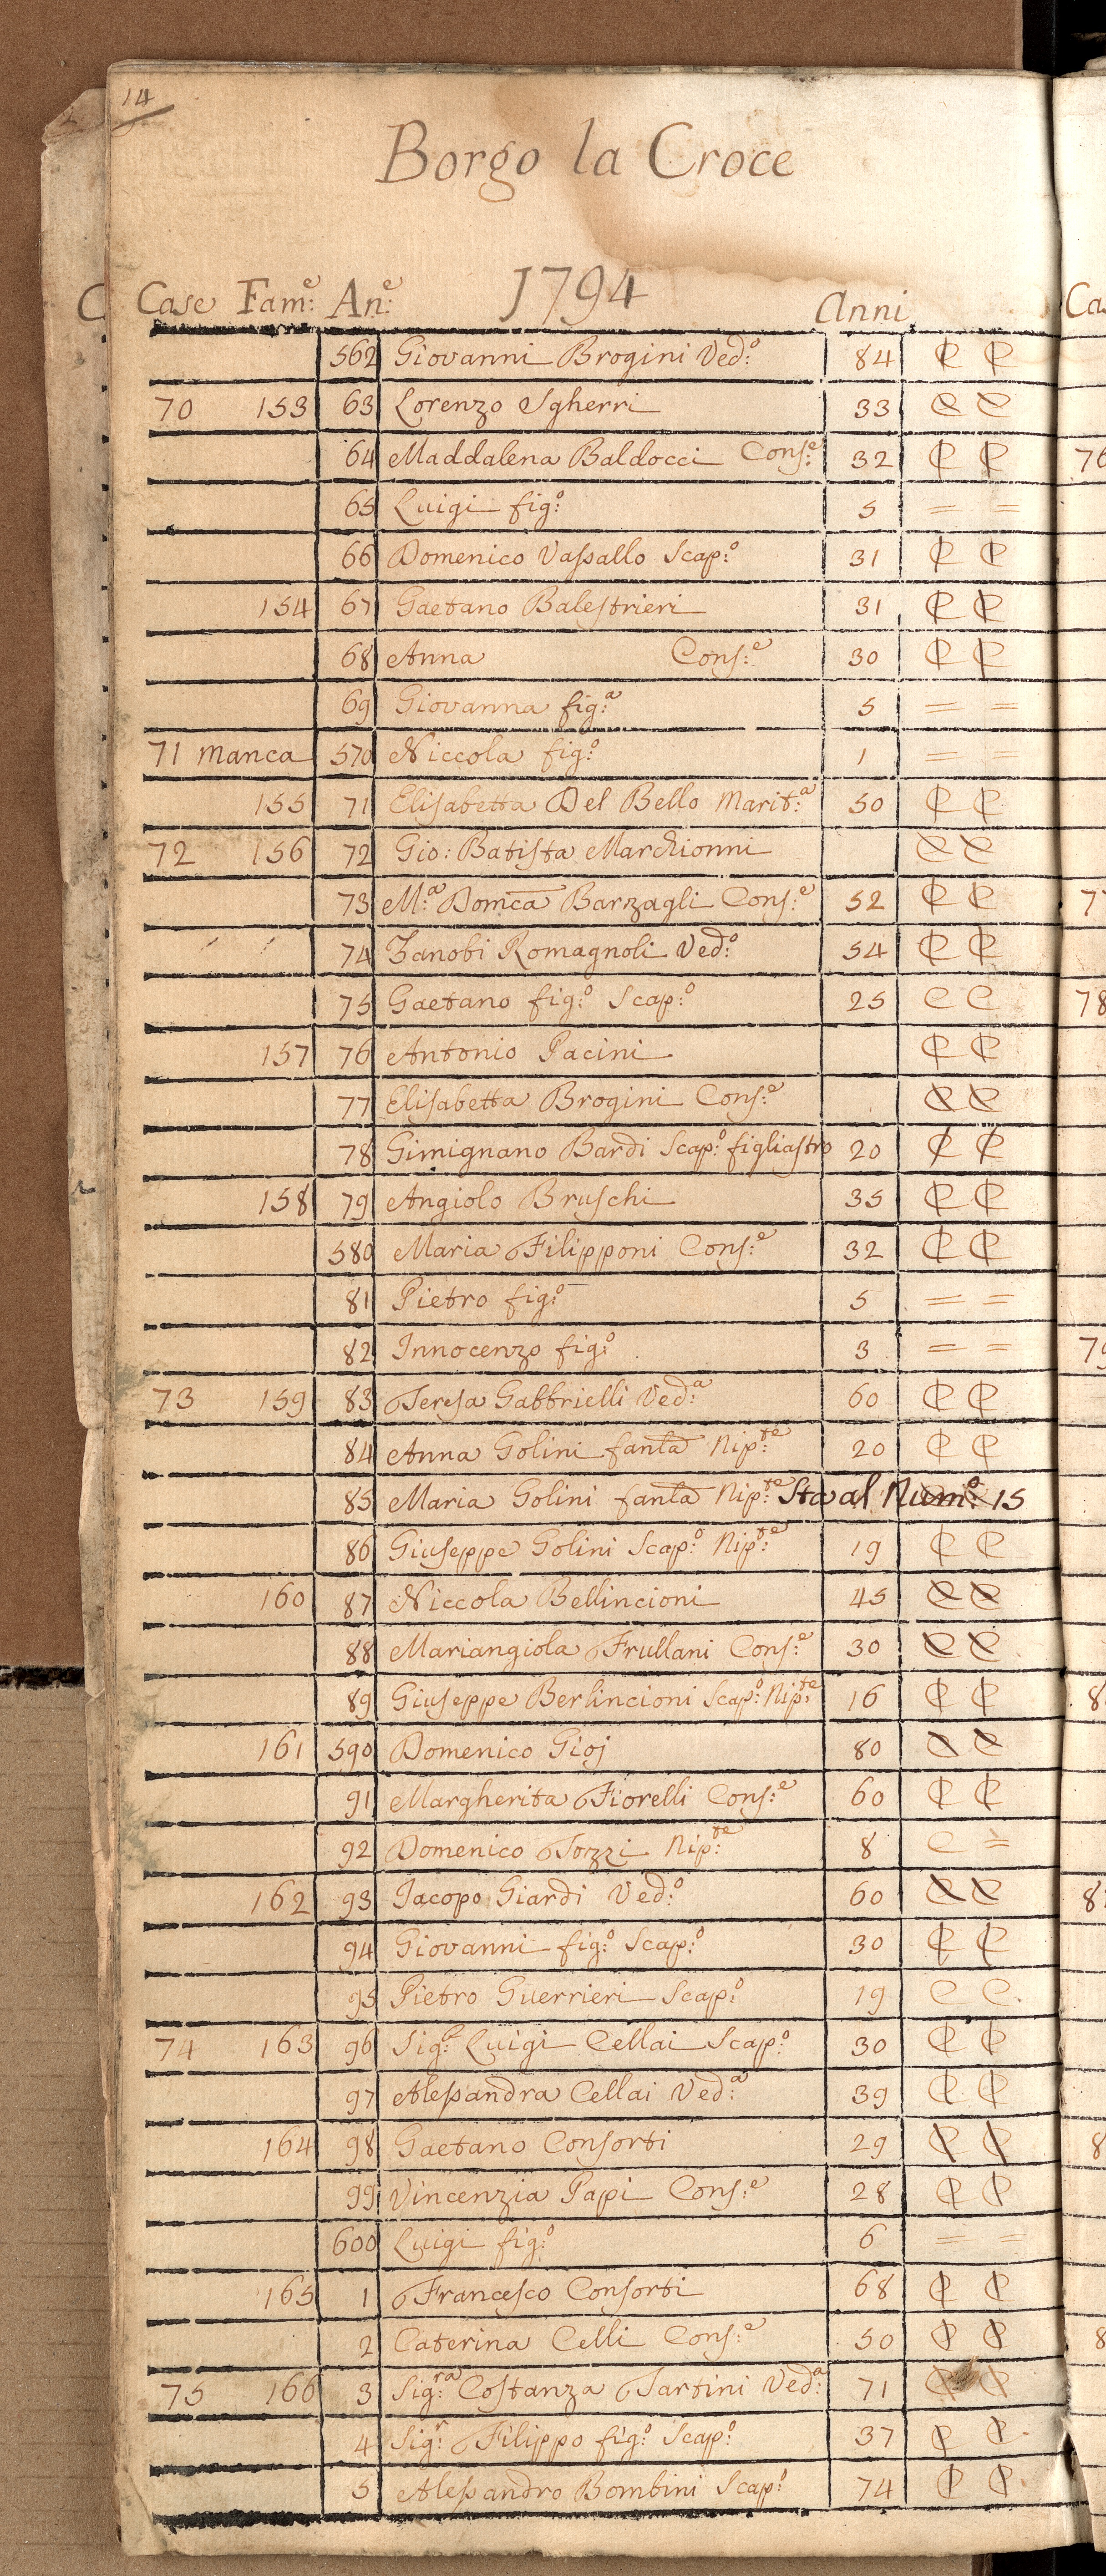 14
Borgo la Croce
1794
Case Fam:e An:e Anni
562 Giovanni Brogini Ved:o 84 C C
70 153 63 Lorenzo Sgherri 33 C C
64 Maddalena Baldocci Cons:e 32 C C
65 Luigi fig:o 5 = =
66 Domenico Vassallo Scap:o 31 C C
154 67 Gaetano Balestrieri 31 C C
68 Anna Cons:e 30 C C
69 Giovanna fig:a 5 = =
71 manca 570 Niccola fig:o 1 = =
155 71 Elisabetta Del Bello Marit:a 50 C C
72 156 72 Gio: Batista Marchionni C C
73 M:a Domca Barzagli Cons:e 52 C C
74 Zanobi Romagnoli Ved:o 54 C C
75 Gaetano fig:o Scap:o 25 C C
157 76 Antonio Pacini C C
77 Elisabetta Brogini Cons:e C C
78 Gimignano Bardi Scap:o figliastro 20 C C
158 79 Angiolo Bruschi 35 C C
580 Maria Filipponi Cons:e 32 C C
81 Pietro fig:o 5 = =
82 Innocenzo fig:o 3 = =
73 159 83 Teresa Gabbrielli Ved:a 60 C C
84 Anna Golini fanla Nip:te 20 C C
85 Maria Golini fanla Nip:te Sta al Num:o 15
86 Giuseppe Golini Scap:o Nip:te 19 C C
160 87 Niccola Bellincioni 45 C C
88 Mariangiola Frullani Cons:e 30 C C
89 Giuseppe Berlincioni Scap:o Nip:te 16 C C
161 590 Domenico Gioj 80 C C
91 Margherita Fiorelli Cons:e 60 C C
92 Domenico Tozzi Nip:te 8 C =
162 93 Jacopo Giardi Ved:o 60 C C
94 Giovanni fig:o Scap:o 30 C C
95 Pietro Guerrieri Scap:o 19 C C
74 163 96 Sig:r Luigi Cellai Scap:o 30 C C
97 Alessandra Cellai Ved:a 39 C C
164 98 Gaetano Consorti 29 C C
99 Vincenzia Papi Cons:e 28 C C
600 Luigi fig:o 6 = =
165 1 Francesco Consorti 68 C C
2 Caterina Celli Cons:e 50 C C
75 166 3 Sig:ra Costanza Tartini Ved:a 71 C C
4 Sig:r Filippo fig:o Scap:o 37 C C
5 Alessandro Bombini Scap:o 74 C C